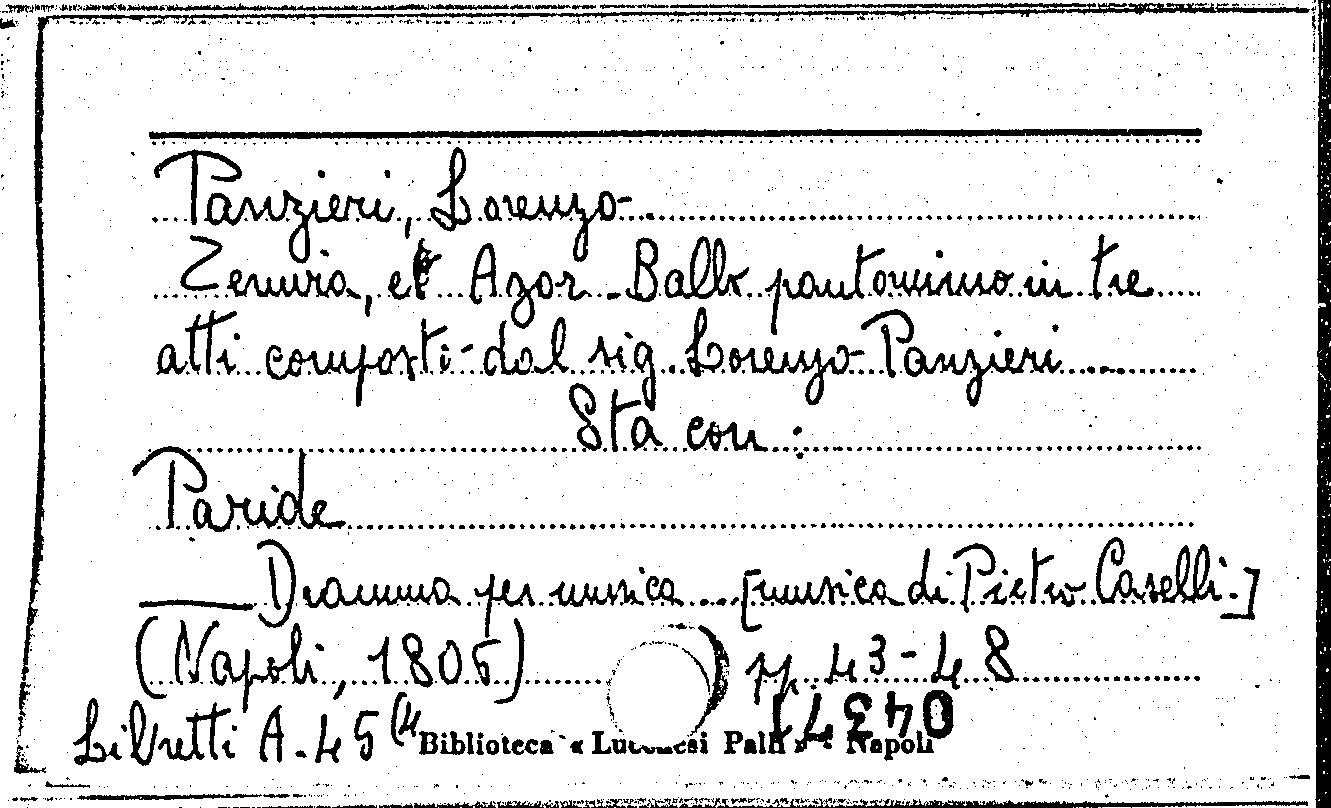 Panzieri, Lorenzo
Zemira, et Azor - Ballo pantomimo in tre
atti composti dal sig. Lorenzo Panzieri ....
Sta con :
Paride
—— Dramma per musica ... [musica di Pietro Caselli.]
(Napoli, 1806) pp. 43-48
Libretti A. 45 (4
Biblioteca « Lucchesi Palli » - Napoli